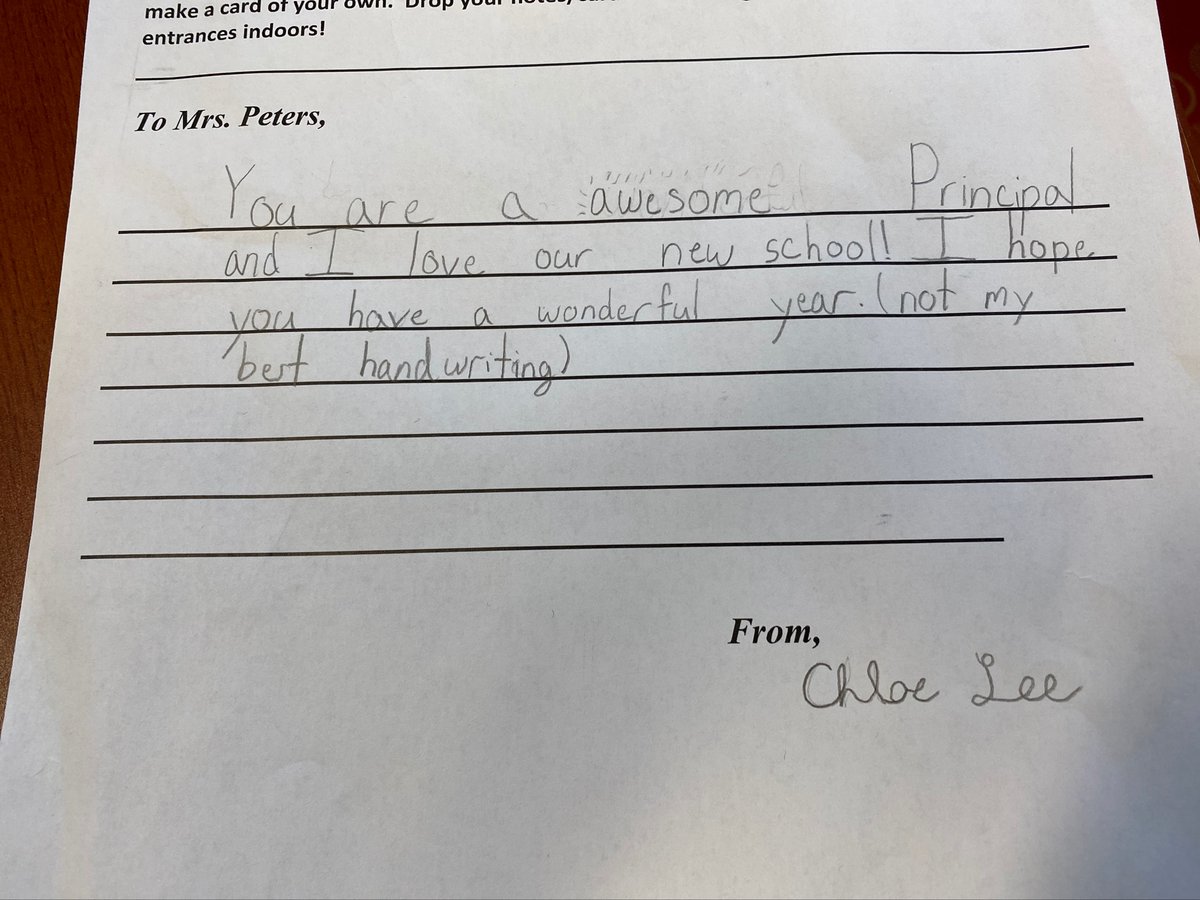 make a card of your own. Drop your
entrances indoors!
To Mrs. Peters,
You are a awesome Principal
and I love our new school! I hope
you have a wonderful year. (not my
best handwriting)
From,
Chloe Lee